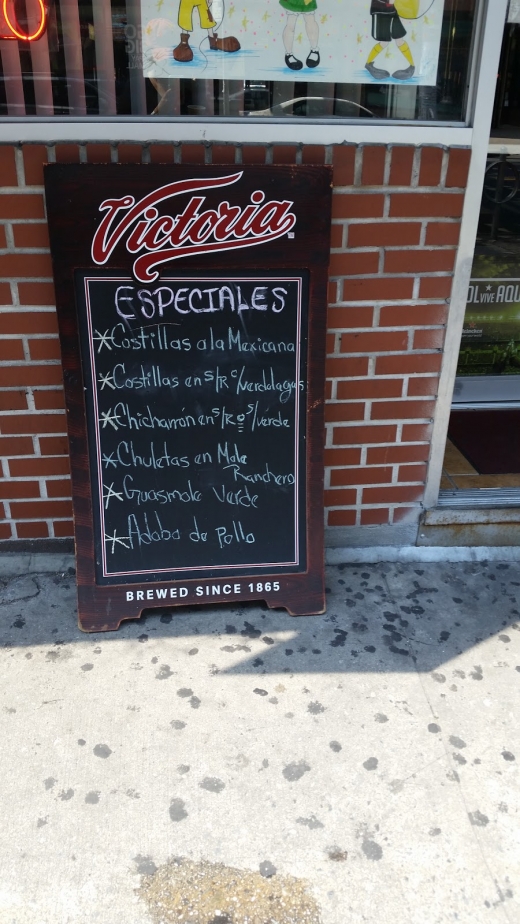 Victoria
ESPECIALES
*Costillas a la Mexicana
*Costillas en S/R c/verdolagas
*Chicharrón en S/R o S/verde
*Chuletas en Mole
Ranchero
*Guasmole Verde
*Adobo de Pollo
BREWED SINCE 1865
VIVE AQU